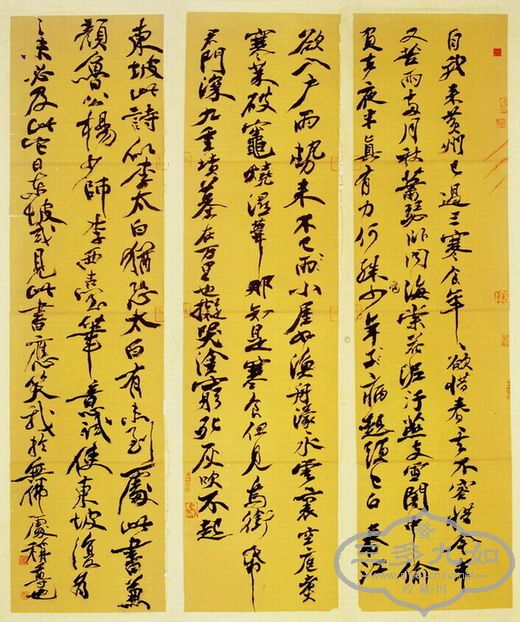 自我来黄州已過三寒食年〻欲惜春春不容惜今年
又苦雨兩月秋蕭瑟卧聞海棠花泥汙燕支雪闇中偷
負去夜半真有力何殊少年子病起須已白春江
欲入户雨勢来不已雨小屋如漁舟濛水雲裏空庖煮
寒菜破竈燒濕葦那知是寒食但見烏銜帋
君門深九重墳墓在万里也擬哭塗窮死灰吹不起
東坡此詩似李太白猶恐太白有未到處此書兼
顏魯公楊少師李西臺筆意試使東坡復為
之未必及此它日東坡或見此書應笑我於無佛處稱尊也
三多九如
收藏网